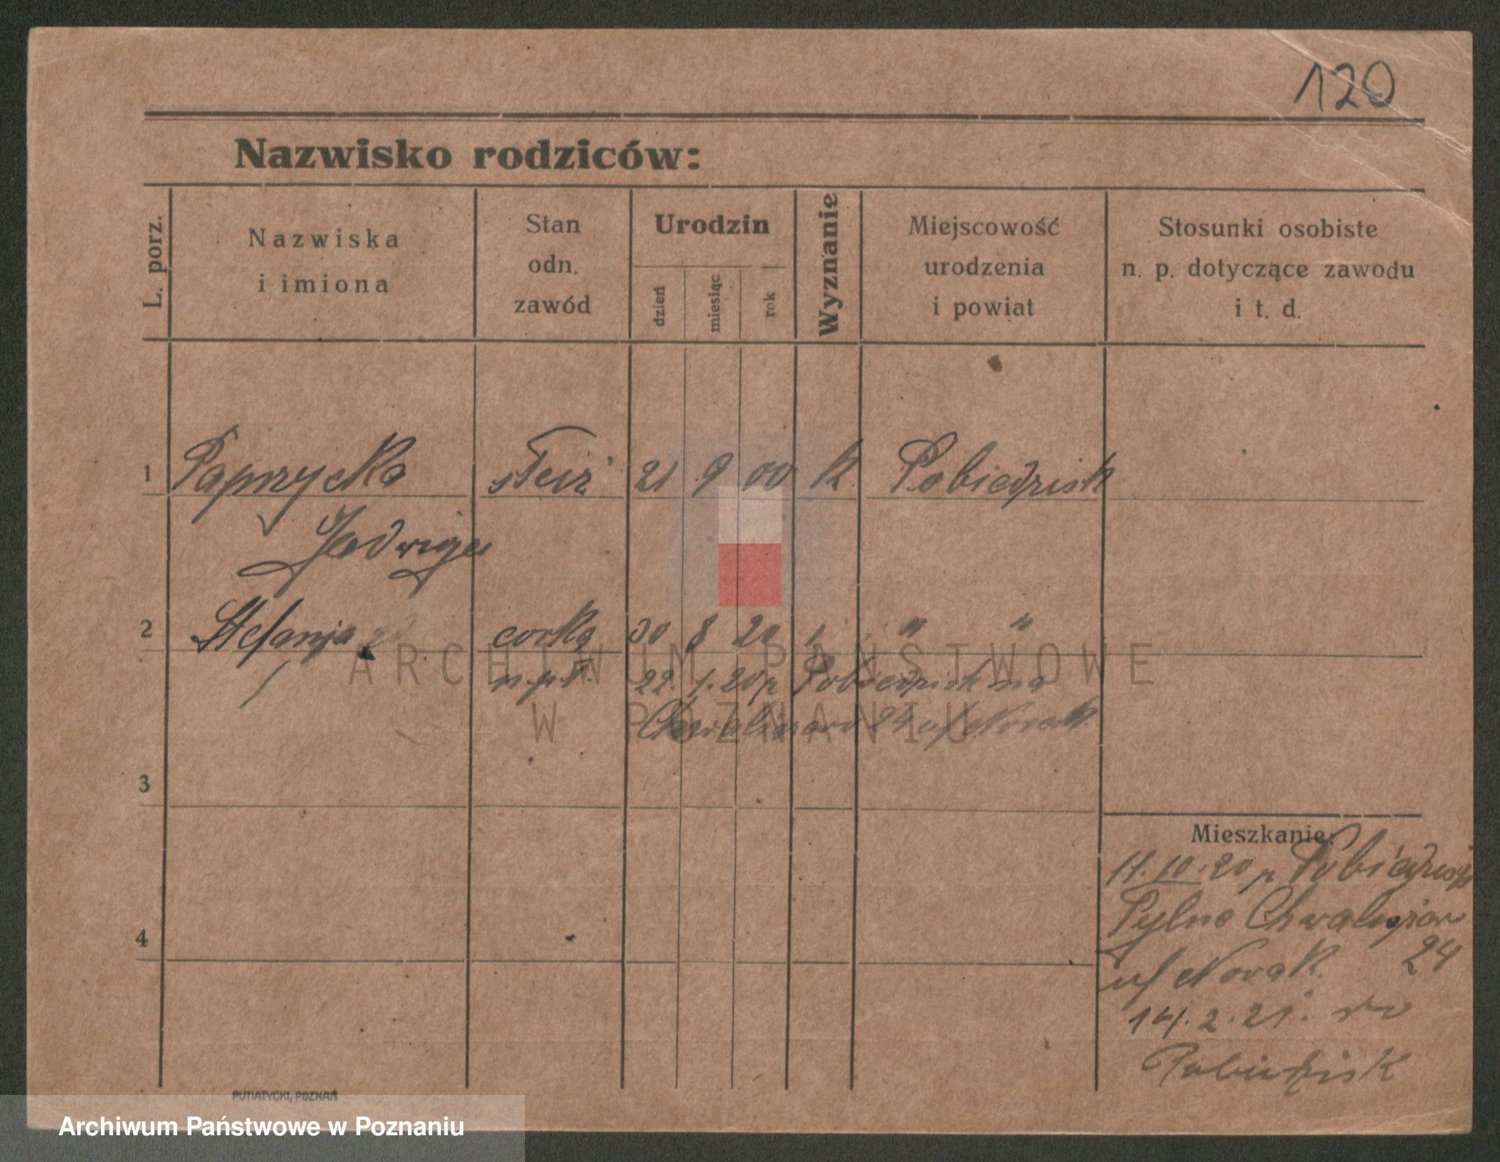 120
Nazwisko rodziców:
L. porz.
Nazwiska
i imiona
Stan
odn.
zawód
Urodzin
dzień
miesiąc
rok
Wyznanie
Miejscowość
urodzenia
i powiat
Stosunki osobiste
n. p. dotyczące zawodu
i t. d.
1 Paprzycka 21 9 00 k Pobiedzisk
Jadwiga
2 Stefanja corka 30 8 20 " " "
22. 1. 20 p Pobiedzisk na
24 Novak
3
4
Mieszkanie:
11.10.20 p Pobiedzisk
Pylna
24
Novak
14.2.21.
Pobiedzisk
ARCHIWUM PAŃSTWOWE
W POZNANIU
PUTIATYCKI, POZNAŃ
Archiwum Państwowe w Poznaniu